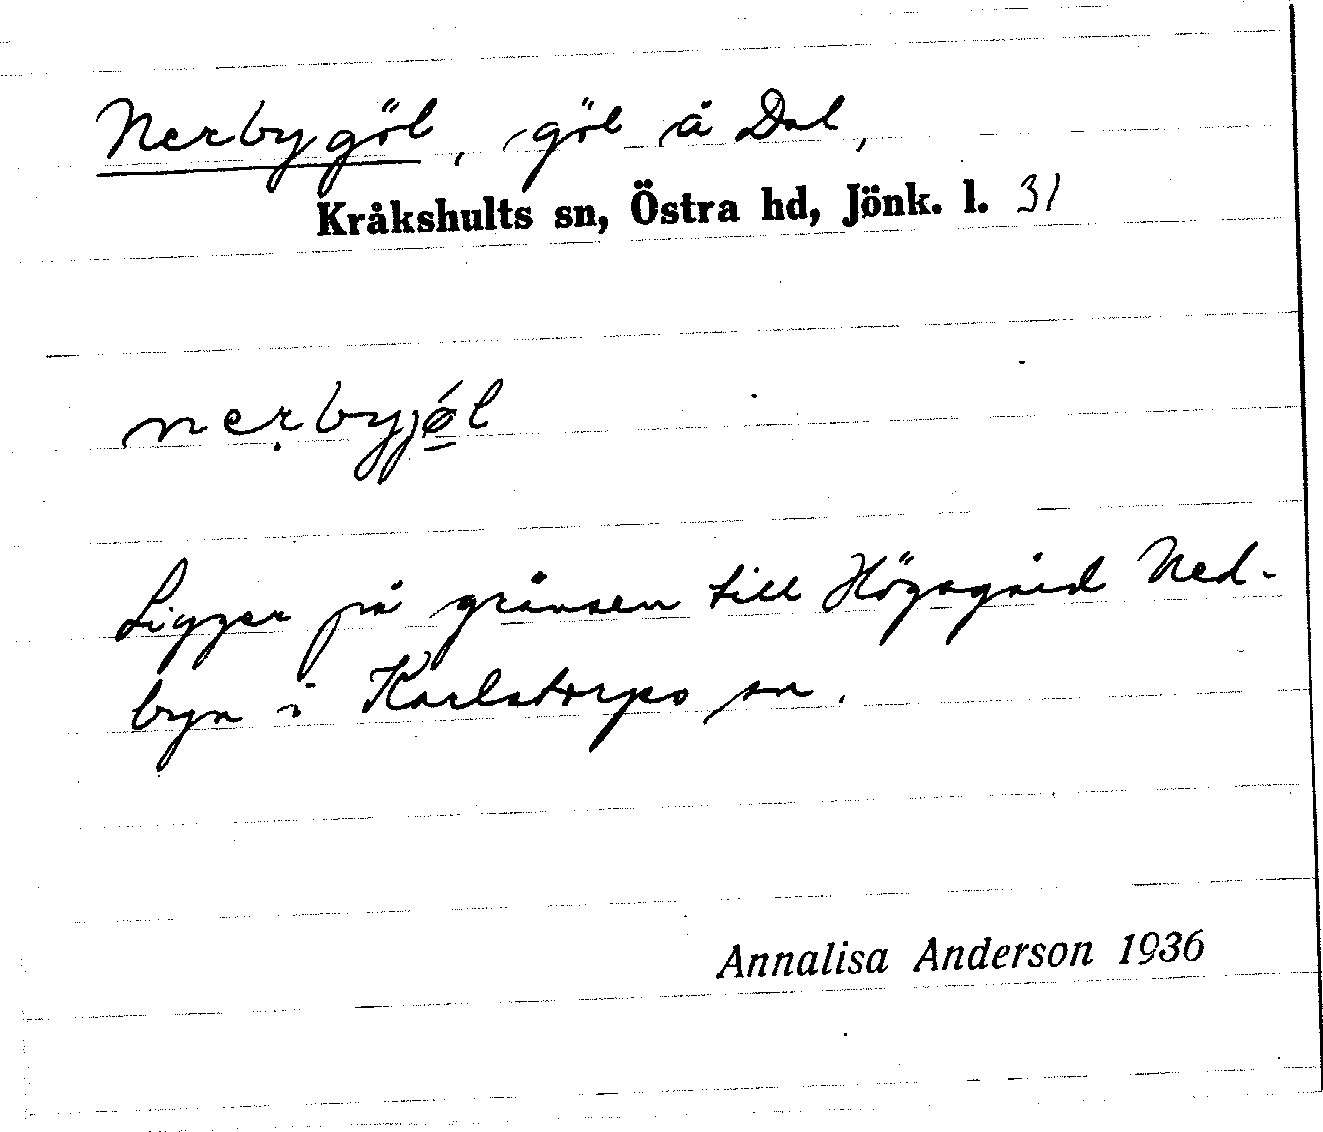 Nerbygöl, göl å Dal,
Kråkshults sn, Östra hd, Jönk. l. 31
nẹrbyjǿ̲l
Ligger på gränsen till Högagärd Ned-
byn i Karlstorps sn.
Annalisa Anderson 1936